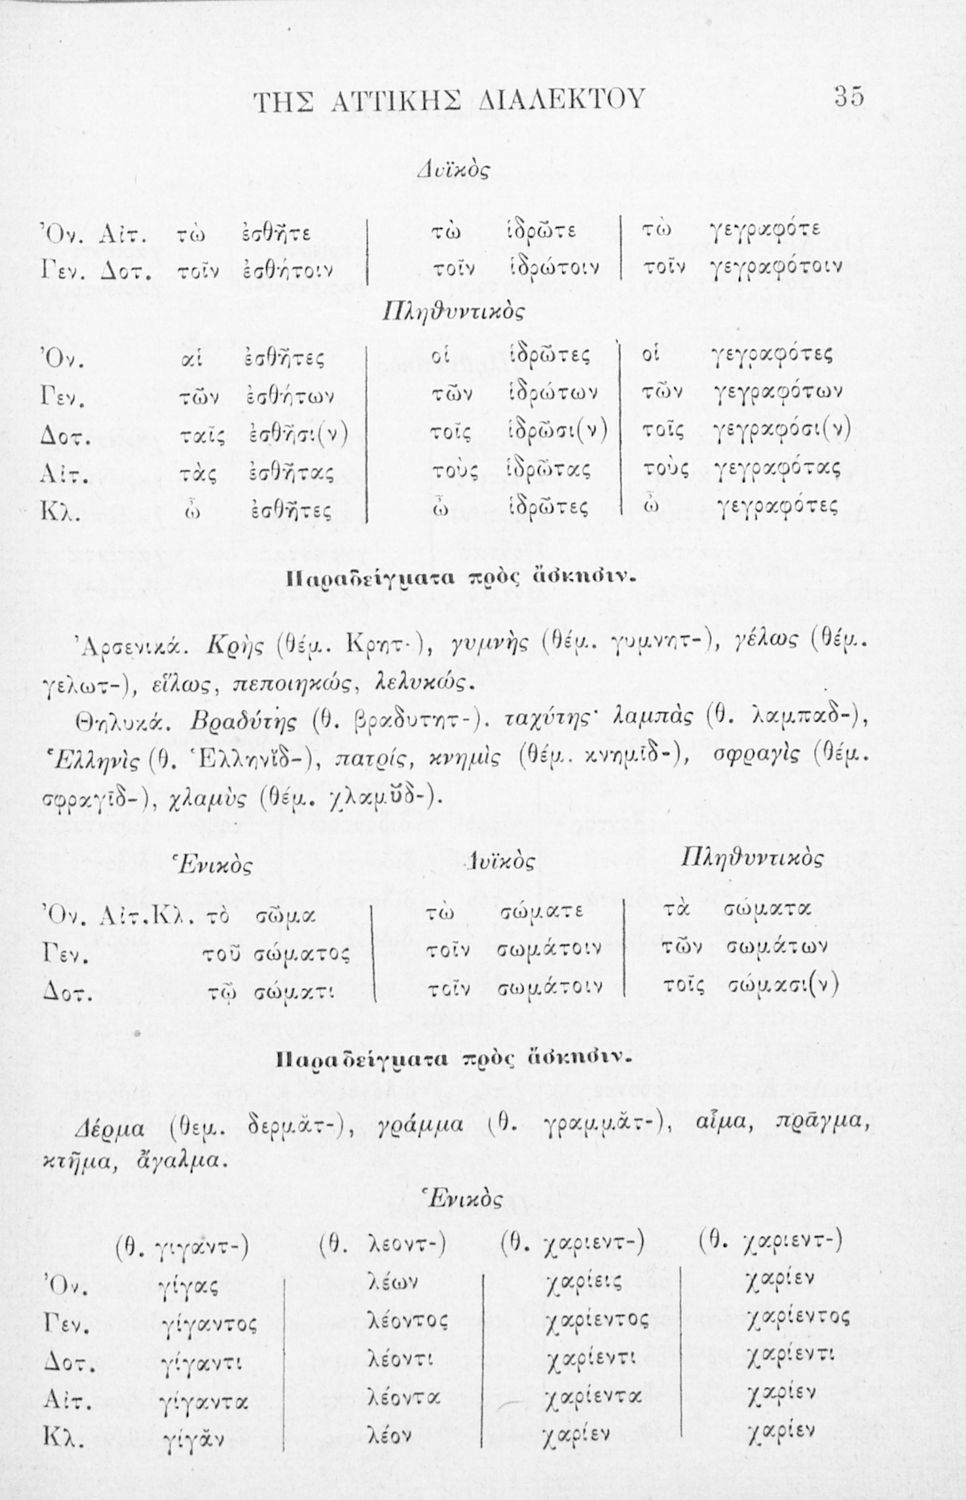 ΤΗΣ ΑΤΤΙΚΗΣ ΔΙΑΛΕΚΤΟΥ 35
Δυϊκὸς
Ὀν. Αἰτ. τὼ ἐσθῆτε τὼ ἱδρῶτε τὼ γεγραφότε
Γεν. Δοτ. τοῖν ἐσθήτοιν τοῖν ἱδρώτοιν τοῖν γεγραφότοιν
Πληθυντικὸς
Ὀν. αἱ ἐσθῆτες οἱ ἱδρῶτες οἱ γεγραφότες
Γεν. τῶν ἐσθήτων τῶν ἱδρώτων τῶν γεγραφότων
Δοτ. ταῖς ἐσθῆσι(ν) τοῖς ἱδρῶσι(ν) τοῖς γεγραφόσι(ν)
Αἰτ. τὰς ἐσθῆτας τοὺς ἱδρῶτας τοὺς γεγραφότας
Κλ. ὦ ἐσθῆτες ὦ ἱδρῶτες ὦ γεγραφότες
Παραδείγματα πρὸς ἄσκησιν.
Ἀρσενικά. Κρὴς (θέμ. Κρητ-), γυμνὴς (θέμ. γυμνητ-), γέλως (θέμ.
γελωτ-), εἵλως, πεποιηκώς, λελυκώς.
Θηλυκά. Βραδύτης (θ. βραδυτητ-). ταχύτης· λαμπὰς (θ. λαμπαδ-),
Ἑλληνὶς (θ. Ἑλληνῐδ-), πατρίς, κνημὶς (θέμ. κνημῑδ-), σφραγὶς (θέμ.
σφραγῑδ-), χλαμὺς (θέμ. χλαμῠδ-).
Ἑνικὸς Δυϊκὸς Πληθυντικὸς
Ὀν. Αἰτ.Κλ. τὸ σῶμα τὼ σώματε τὰ σώματα
Γεν. τοῦ σώματος τοῖν σωμάτοιν τῶν σωμάτων
Δοτ. τῷ σώματι τοῖν σωμάτοιν τοῖς σώμασι(ν)
Παραδείγματα πρὸς ἄσκησιν.
Δέρμα (θεμ. δερμᾰτ-), γράμμα (θ. γραμμᾰτ-), αἷμα, πρᾶγμα,
κτῆμα, ἄγαλμα.
Ἑνικὸς
(θ. γιγάντ-) (θ. λεοντ-) (θ. χαριεντ-) (θ. χαριεντ-)
Ὀν. γίγας λέων χαρίεις χαρίεν
Γεν. γίγαντος λέοντος χαρίεντος χαρίεντος
Δοτ. γίγαντι λέοντι χαρίεντι χαρίεντι
Αἰτ. γίγαντα λέοντα χαρίεντα χαρίεν
Κλ. γίγᾰν λέον χαρίεν χαρίεν